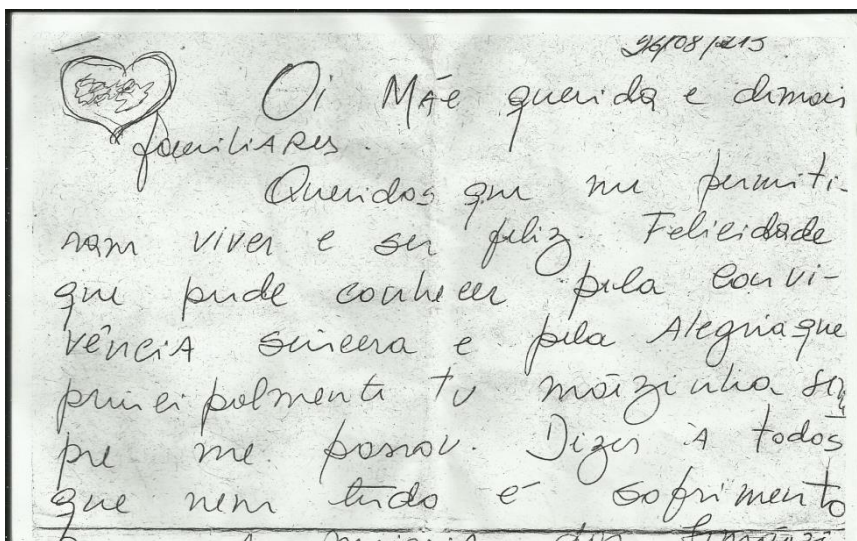 26/08/215
Oi Mãe querida e demais
familiares.
Queridos que me permiti-
ram viver e ser feliz. Felicidade
que pude conhecer pela convi-
vência sincera e pela Alegria que
principalmente tu mãezinha sem
pre me passou. Dizer A todos
que nem tudo é sofrimento